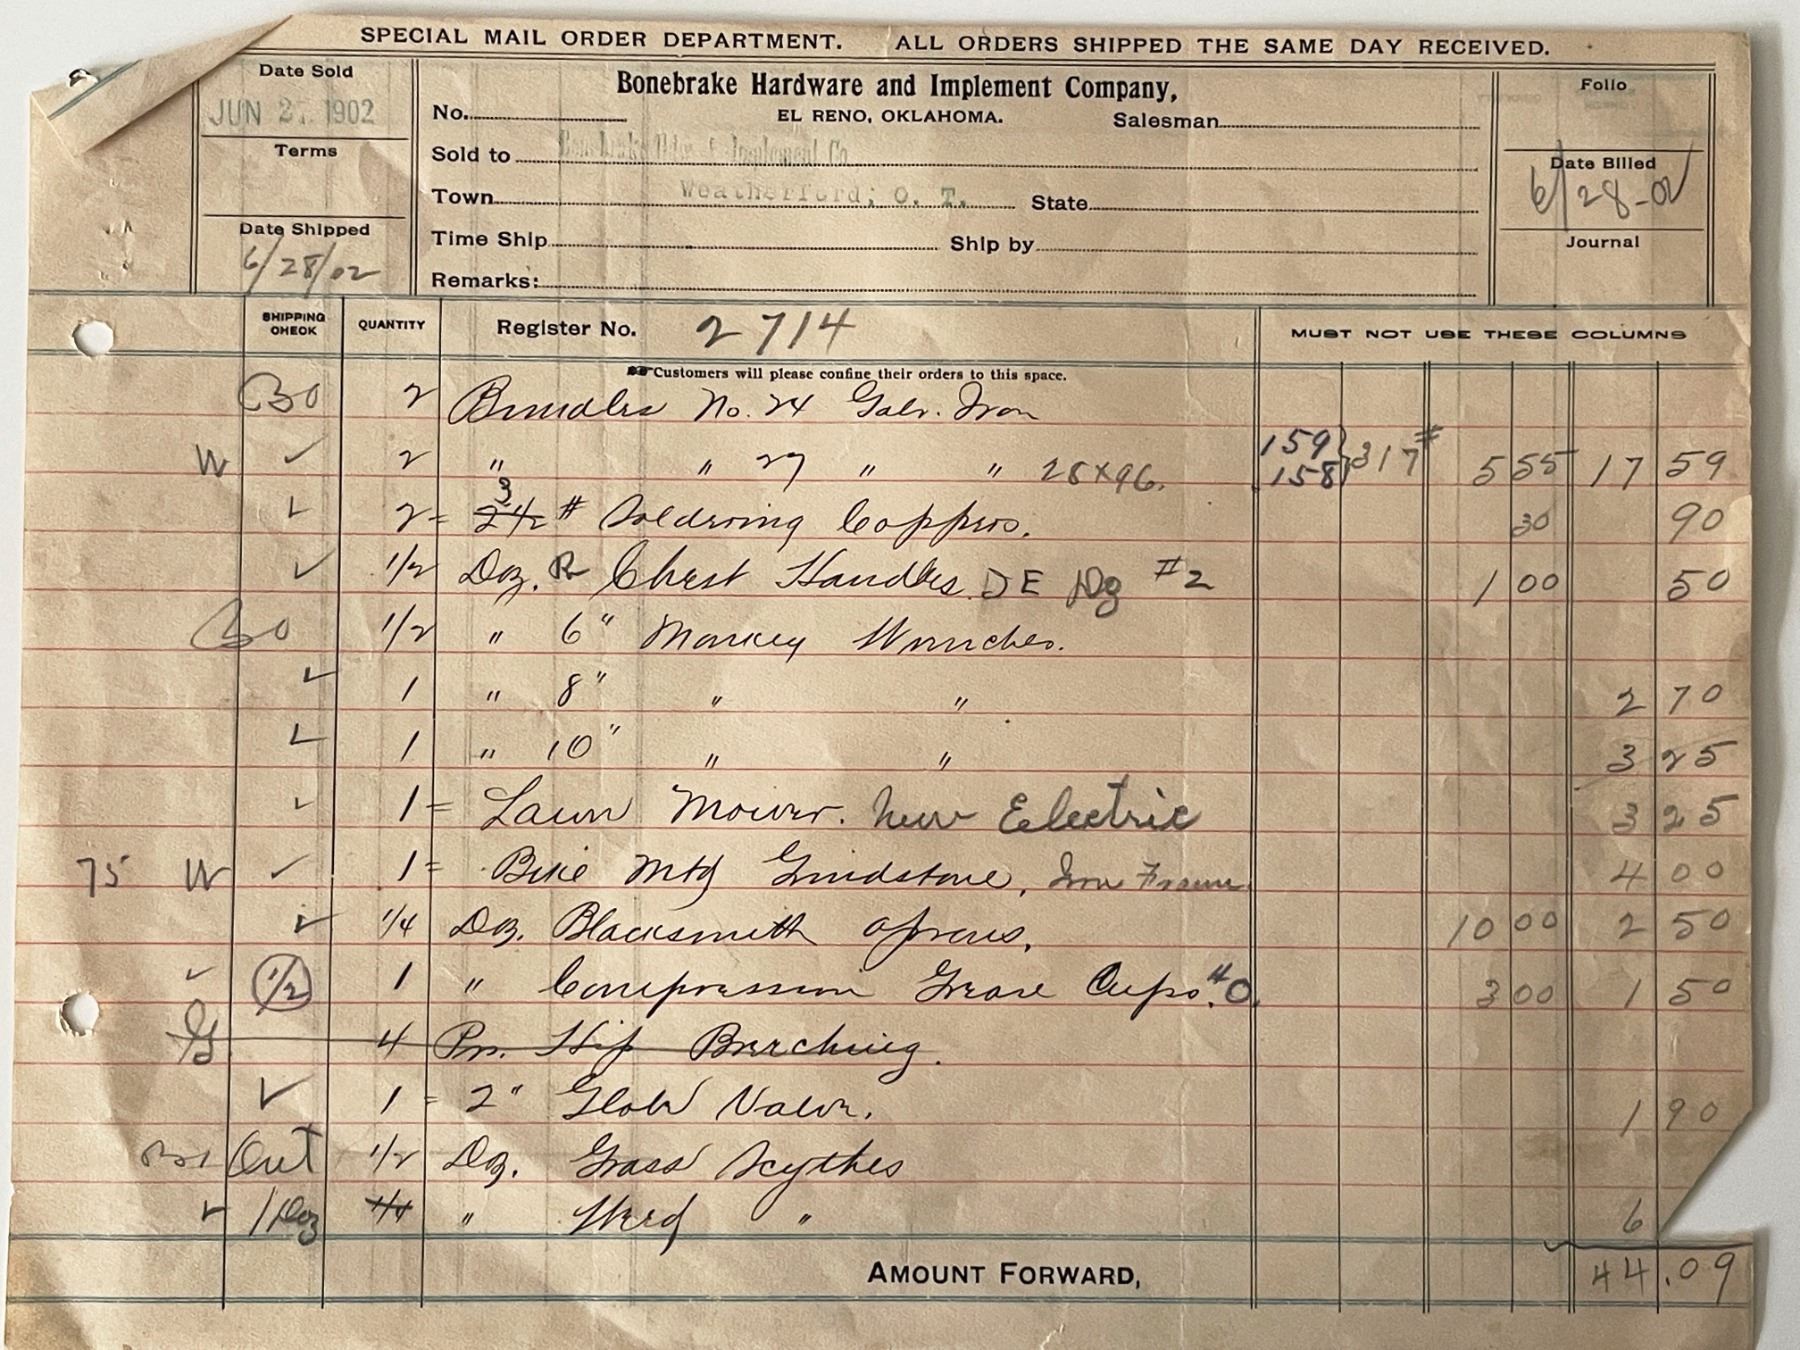 SPECIAL MAIL ORDER DEPARTMENT. ALL ORDERS SHIPPED THE SAME DAY RECEIVED.
Date Sold
JUN 27 1902
Terms
Date Shipped
6/28/02
Bonebrake Hardware and Implement Company,
EL RENO, OKLAHOMA.
No. Salesman
Sold to Implement Co
Town Weatherford; O. T. State
Time Ship Ship by
Remarks:
Folio
Date Billed
6/28-02
Journal
SHIPPING CHECK QUANTITY Register No. 2714 MUST NOT USE THESE COLUMNS
Customers will please confine their orders to this space.
BO 2 Bundles No. 24 Galv. Iron
W ✓ 2 " " 27 " " 28x96. 159 158 } 317 # 5 55 17 59
✓ 2 = 2½ 3 # Soldering Coppers. 30 90
✓ 1/2 Doz. R Chest Handles. DE Dg #2 1 00 50
BO 1/2 " 6" Monkey Wrenches.
✓ 1 " 8" " " 2 70
✓ 1 " 10" " " 3 25
✓ 1 = Lawn Mower. New Electric 3 25
75 W ✓ 1 = Bike Mtd Grindstone, Iron Frame 4 00
✓ 1/4 Doz. Blacksmith aprons. 10 00 2 50
✓ 1/2 1 " Compression Grease Cups. #0. 3 00 1 50
4 Pr. Hip Breeching.
✓ 1 = 2" Globe Valve. 1 90
Out 1/2 Doz. Grass Scythes
✓ 1 Doz 1/4 " Weed " 6
AMOUNT FORWARD, 44.09